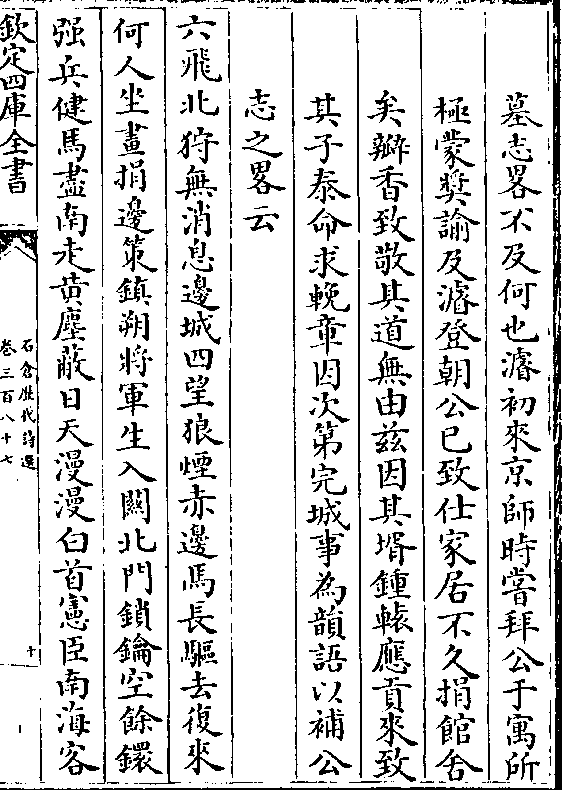 墓志畧不及何也濬初來京師時嘗拜公于寓所
極蒙奬諭及濬登朝公已致仕家居不久捐館舍
矣瓣香致敬其道無由兹因其壻鍾轅應貢來致
其子泰命求輓章因次第完城事為韻語以補公
志之畧云
六飛北狩無消息邊城四望狼煙赤邊馬長驅去復來
何人坐畫捐邊策鎮朔將軍生入關北門鎖鑰空餘鐶
强兵健馬盡南走黄塵蔽日天漫漫白首憲臣南海客
欽定四庫全書
石倉歴代詩選
卷三百八十七
十